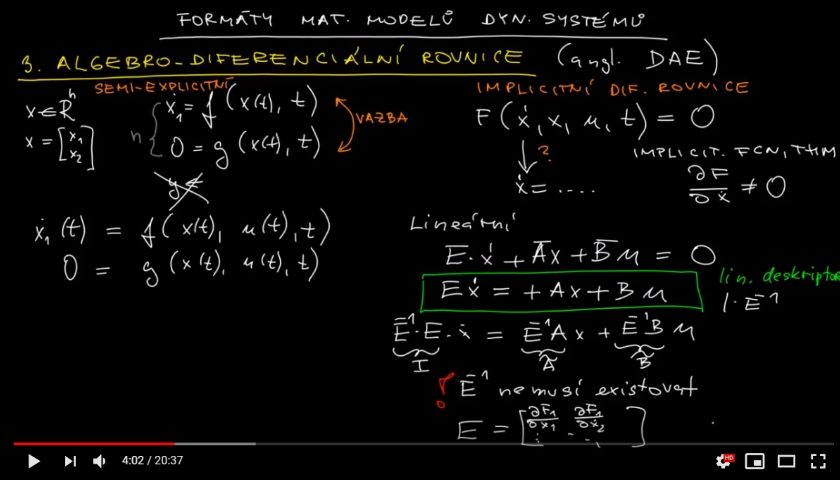 FORMÁTY MAT. MODELŮ DYN. SYSTÉMŮ
3. ALGEBRO-DIFERENCIÁLNÍ ROVNICE (angl. DAE)
SEMI-EXPLICITNÍ
x ∈ Rⁿ
x = [x₁ x₂]
n { ẋ₁ = f (x(t), t)
0 = g (x(t), t)
VAZBA
y =
ẋ₁(t) = f( x(t), u(t), t)
0 = g (x(t), u(t), t)
IMPLICITNÍ DIF. ROVNICE
F(ẋ, x, u, t) = 0
?
ẋ = ....
IMPLICIT. FCN, THM
∂F/∂ẋ ≠ 0
Lineární
E·ẋ + A̅x + B̅u = 0
Eẋ = +Ax + Bu
lin. deskriptor
/· E⁻¹
E⁻¹·E·ẋ = E⁻¹Ax + E⁻¹Bu
I Ã B̃
! E⁻¹ nemusí existovat
E = [∂F₁/∂ẋ₁ ∂F₁/∂ẋ₂ ⋮ ⋱]
4:02 / 20:37
HD